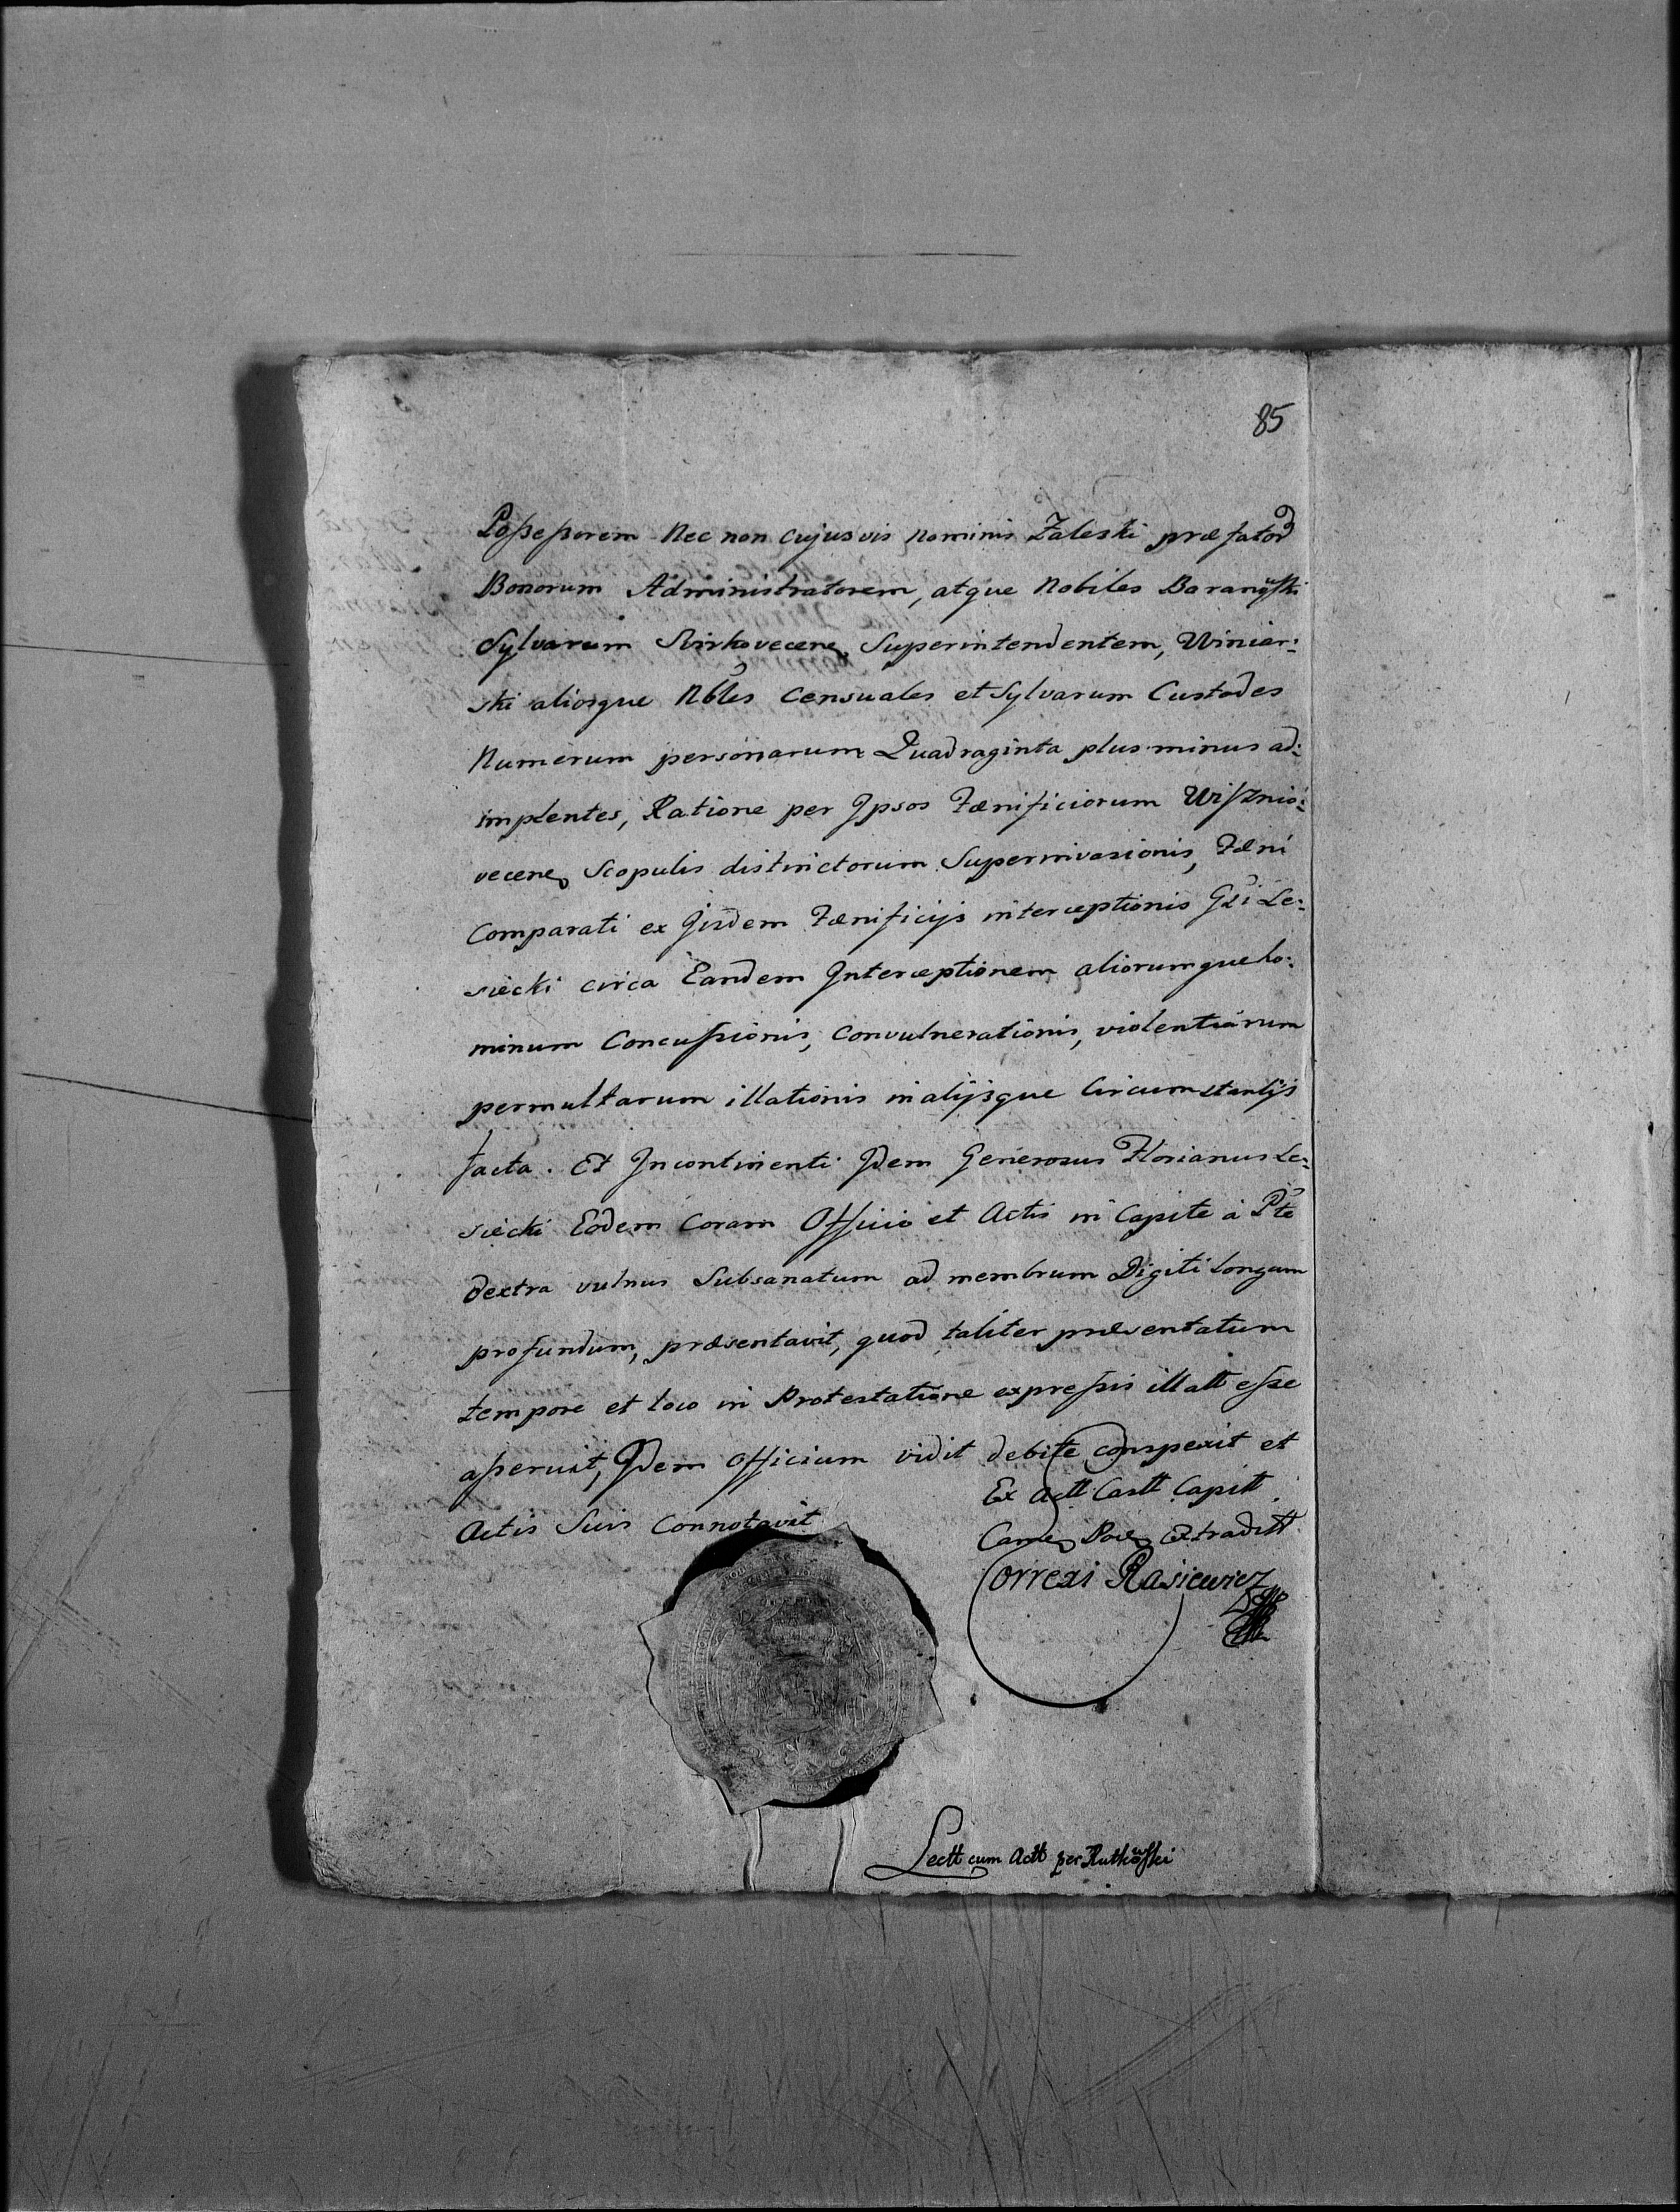 85
Poßeßorem Nec non cujusvis nominis Zaleski præfator
Bonorum Administratorem, atque Nobiles Baranowski
Sylvarum Superintendentem, Winiar:
ski aliosque Nbles Censuales et Sylvarum Custodes
Numerum personarum Quadraginta plus minus ad:
implentes, Ratione per Jpsos Fænificiorum Wiſznio:
vecen Scopulis distinctorum Superinvasionis, Fæni
Comparati ex Jisdem Fænificijs interceptionis Gsi Le:
siecki circa Eandem Interceptionem aliorumque ho:
minum Concuſsionis, convulnerationis, violentiarum
permultarum illationis in alijsque Circumstantijs
facta. Et Incontinenti Jdem Generosus Florianus Le:
siecki Eodem Coram Officio et Actis in Capite à Pte
dextra vulnus Subsanatum ad membrum Digiti longum
profundum, præsentavit, quod taliter præsentatum
tempore et loco in Protestatione expreſsis illatt eſse
aſseruit, Jdem Officium vidit debite conspexit et
Actis Suis Connotavit
Ex Actt Castt Capitt
Extraditt
Correxi Rasiewicz
Lectt cum Actt per Rutkowſki